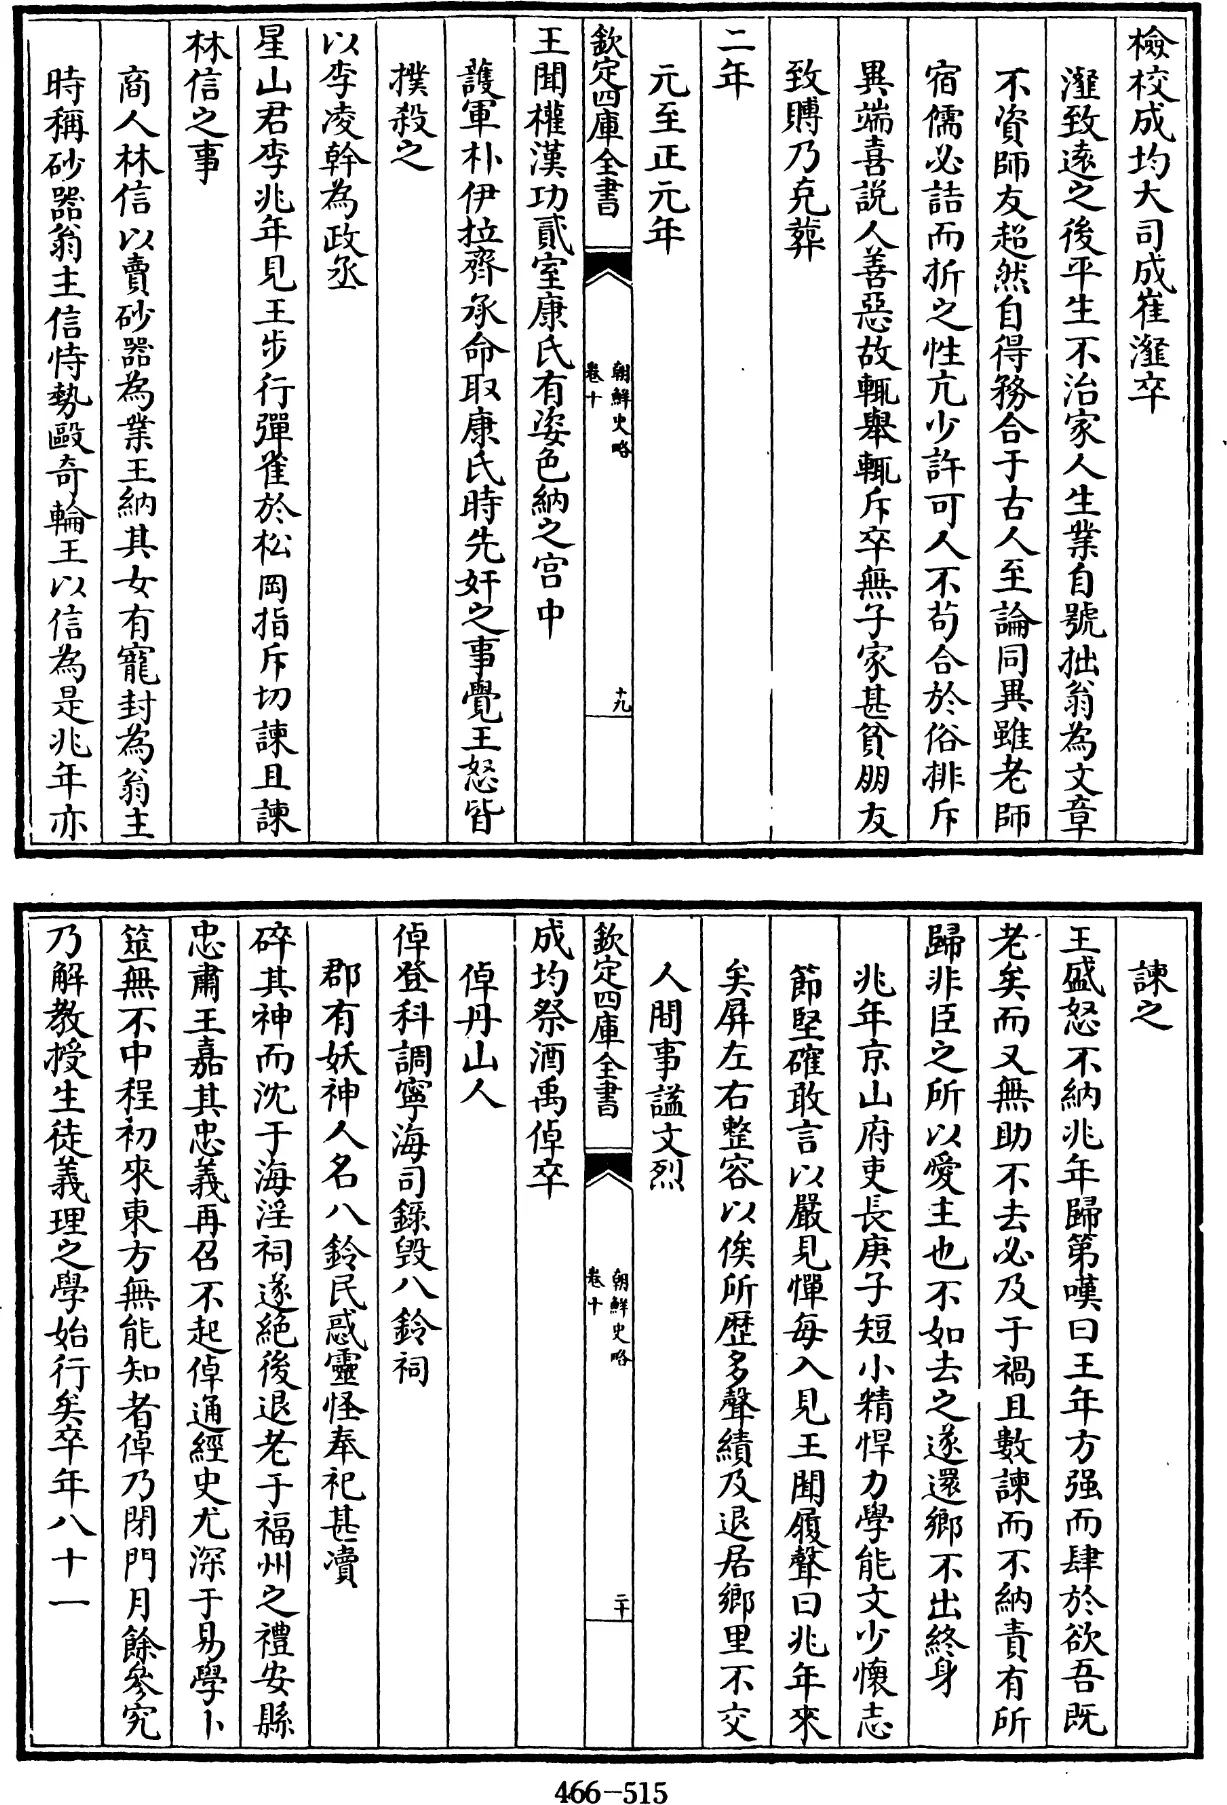 檢校成均大司成崔瀣卒
瀣致遠之後平生不治家人生業自號拙翁為文章
不資師友超然自得務合于古人至論同異雖老師
宿儒必詰而折之性亢少許可人不苟合於俗排斥
異端喜説人善惡故輒舉輒斥卒無子家甚貧朋友
致賻乃克葬
二年
元至正元年
欽定四庫全書
朝鮮史略
卷十
十九
王聞權漢功貳室康氏有姿色納之宫中
護軍朴伊拉齊承命取康氏時先奸之事覺王怒皆
撲殺之
以李凌幹為政丞
星山君李兆年見王步行彈雀於松岡指斥切諫且諫
林信之事
商人林信以賣砂器為業王納其女有寵封為翁主
時稱砂器翁主信恃勢毆奇輪王以信為是兆年亦
諫之
王盛怒不納兆年歸第嘆曰王年方强而肆於欲吾既
老矣而又無助不去必及于禍且數諫而不納責有所
歸非臣之所以愛主也不如去之遂還鄉不出終身
兆年京山府吏長庚子短小精悍力學能文少懷志
節堅確敢言以嚴見憚每入見王聞履聲曰兆年來
矣屏左右整容以俟所歴多聲績及退居鄉里不交
人間事諡文烈
欽定四庫全書
朝鮮史略
卷十
二十
成均祭酒禹倬卒
倬丹山人
倬登科調寧海司錄毀八鈴祠
郡有妖神人名八鈴民惑靈怪奉祀甚瀆
碎其神而沈于海淫祠遂絶後退老于福州之禮安縣
忠肅王嘉其忠義再召不起倬通經史尤深于易學卜
筮無不中程初來東方無能知者倬乃閉門月餘參究
乃解教授生徒義理之學始行矣卒年八十一
466-515